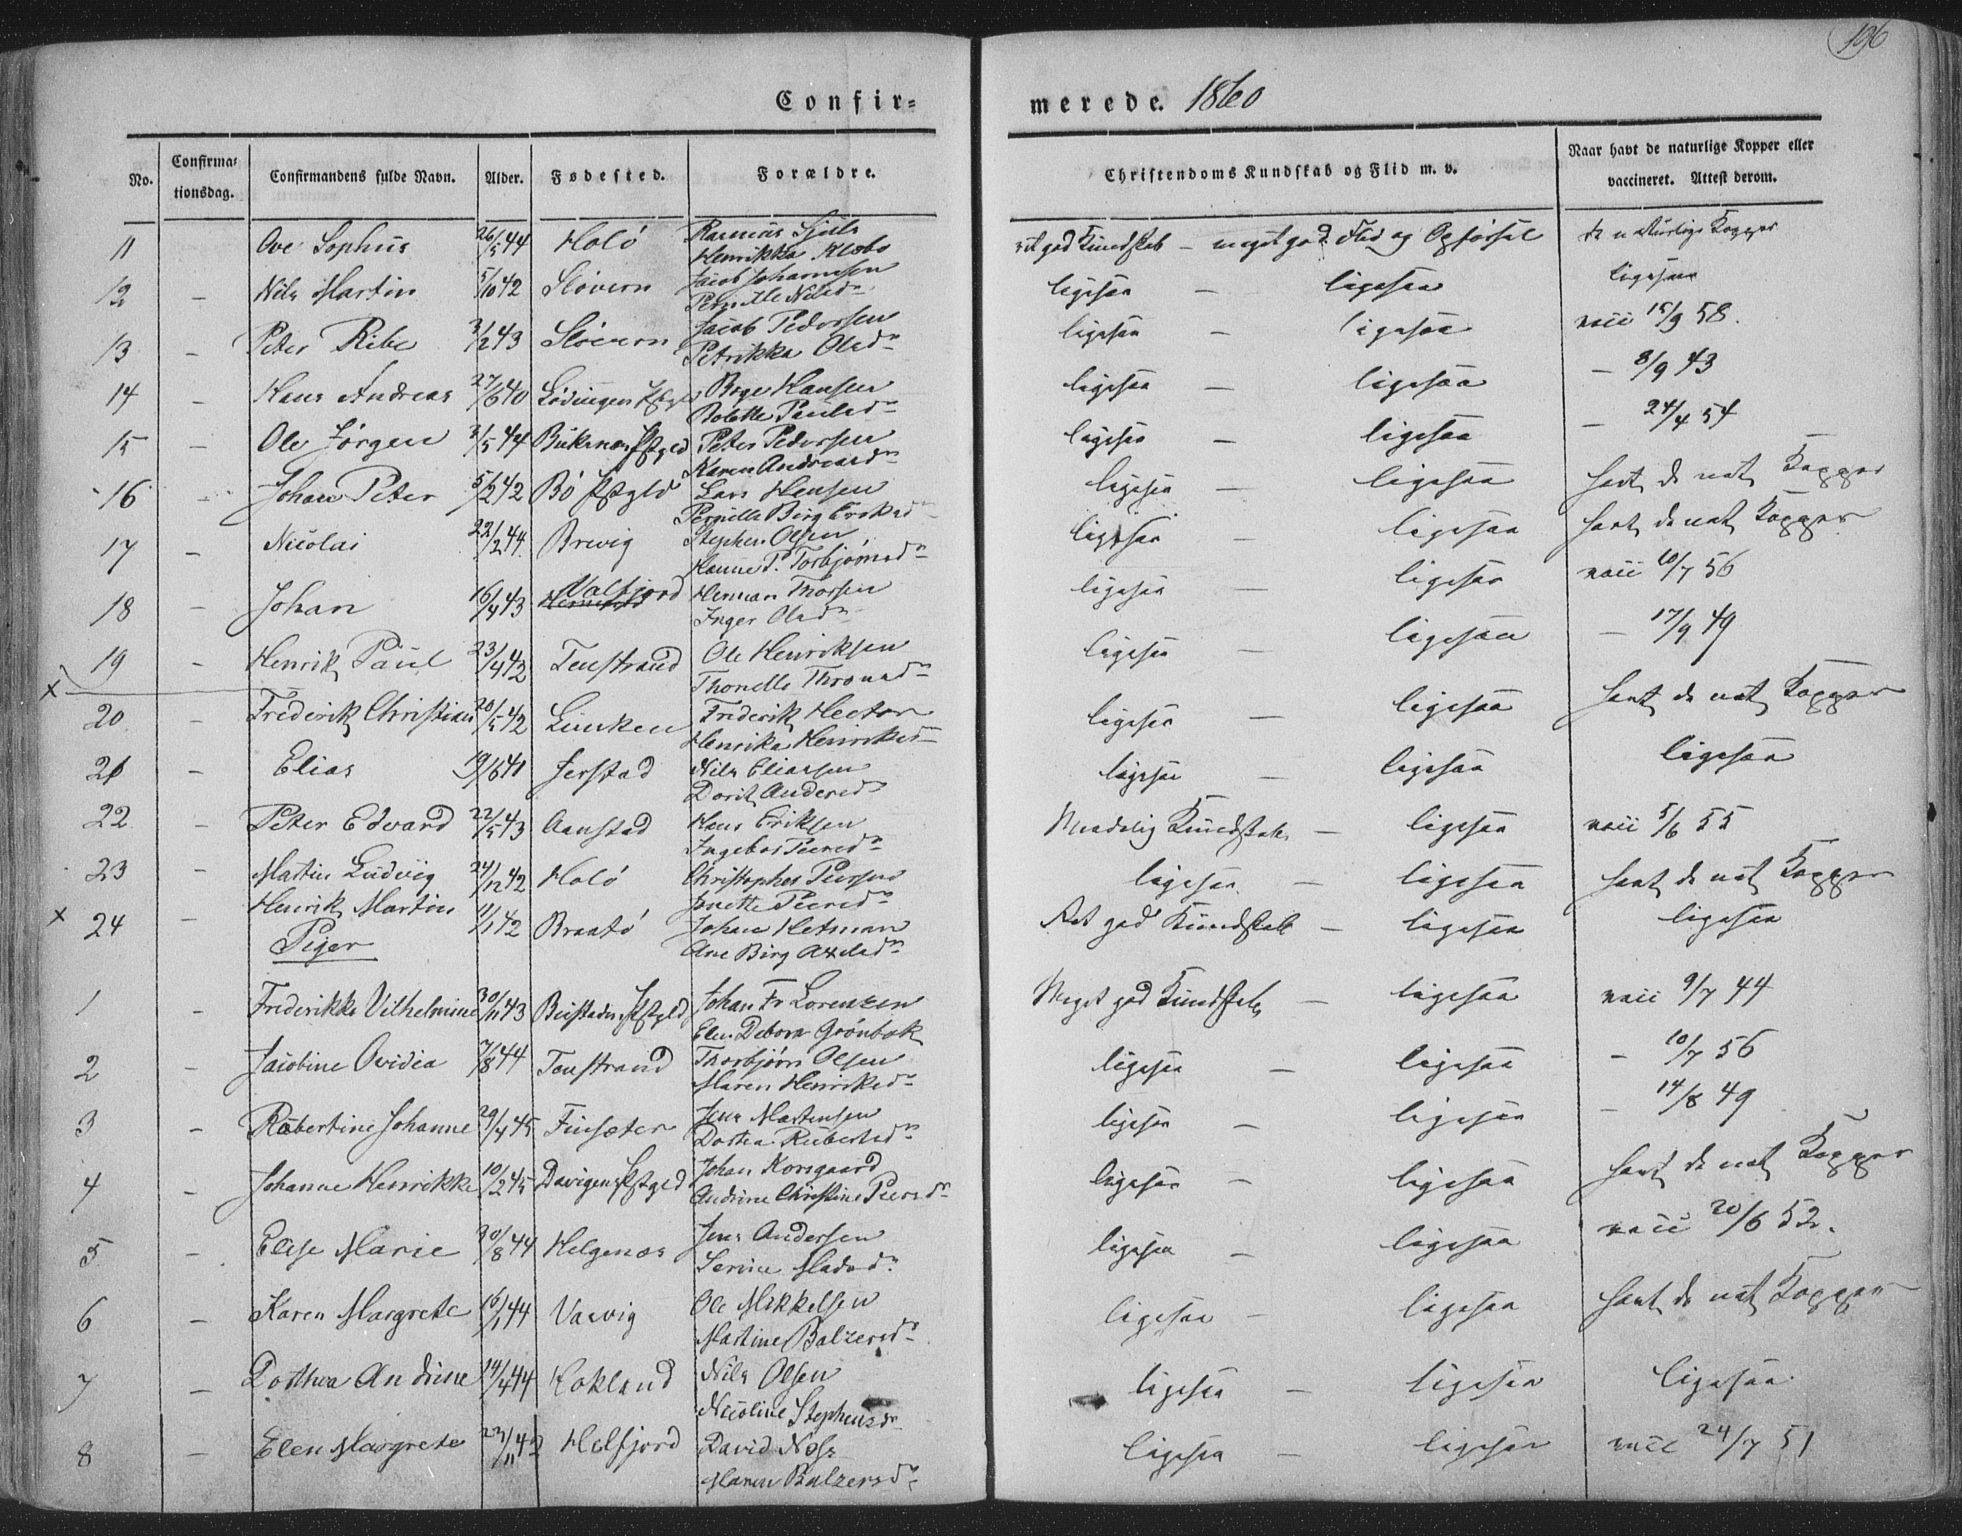 196
Confir-
merede. 1860
No. Confirmationsdag. Confirmandens fulde Navn. Alder. Fødested. Forældre. Christendoms Kundskab og Flid m. v. Naar havt de naturlige Kopper eller vaccineret. Attest derom.
11 Ove Sophus 26/5 44 Holö Rasmus Henrikka Klæbo ret god Kundskab – meget god Flid og Opförsel de naturlige Kopper
12 – Nils Martin 5/10 42 Slövern Jacob Johannesen Pernille Nilsd. ligesaa – ligesaa ligesaa
13 – Peter Ribe 3/2 43 Slövern Jacob Pedersen Petrikka Olsd. ligesaa – ligesaa vacc 15/9 58.
14 – Hans Andreas 27/6 40 Lödingen Pstgld Boge Hansen Bolette Paulsd. ligesaa – ligesaa – 8/9 43
15 – Ole Jörgen 3/5 44 Buksnæs Pstgld Peter Pedersen Karen Andreasd. ligesaa – ligesaa – 24/4 54
16 – Johan Peter 5/2 42 Bö Pstgld Lars Hansen Pernille Birg ligesaa – ligesaa havt de nat Kopper
17 – Nicolai 22/2 44 Brevig Stephen Olsen Hanne P. Torbjörnsd. ligesaa – ligesaa havt de nat Kopper
18 – Johan 16/4 43 Valfjord Herman Thorsen Inger Olsd. ligesaa – ligesaa vacc 10/7 56
19 – Henrik Paul 23/4 42 Tenstrand Ole Henriksen Thonette Thronsd. ligesaa – ligesaa – 17/9 49
x 20 – Frederik Christian 20/5 42 Lunken Friderik Hector Henrika Henriksd. ligesaa – ligesaa havt de nat Kopper
21 – Elias 19/6 41 Jerstad Nils Eliassen Dorit Andersd ligesaa – ligesaa ligesaa
22 – Peter Edvard 22/5 43 Aanstad Hans Eriksen Ingebor Peersd. Maadelig Kundskab – ligesaa vacc 5/6 55
23 – Martin Ludvig 24/12 42 Holö Christopher Peersen Jonette Peersd. ligesaa – ligesaa havt de nat Kopper
x 24 – Henrik Martin 11/1 42 Braatö Johan Hetman Ane Birg Axelsd. Ret god Kundskab – ligesaa ligesaa
Piger
1 – Frederikke Vilhelmine 30/11 43 Beistaden Pstgld Johan Fr Lorenzen Elen Debora Grönbek Meget god Kundskab – ligesaa vacc 9/7 44
2 – Jacobine Ovidia 7/8 44 Tenstrand Thorbjörn Olsen Maren Henriksd. ligesaa – ligesaa – 10/7 56
3 – Robertine Johanne 29/4 45 Finsæter Jens Martensen Dorthea Rubertsd. ligesaa – ligesaa – 14/8 49
4 – Johanne Henrikke 10/2 45 Davigens Pstgld Johan Korsgaard Andrine Christine Peersd. ligesaa – ligesaa havt de nat Kopper
5 – Elise Marie 30/8 44 Helgenæs Jens Andersen Serine Madsd. ligesaa – ligesaa vacc 20/6 52.
6 – Karen Margrete 16/1 44 Varvig Ole Mikkelsen Martine Balzersd. ligesaa – ligesaa havt de nat Kopper
7 – Dorthea Andrine 14/4 44 Kokland Nils Olsen Nicoline Stephensdr ligesaa – ligesaa ligesaa
8 – Elen Margrete 23/11 42 Helfjord David Nöss Maren Balzersd. ligesaa – ligesaa vacc 24/7 51